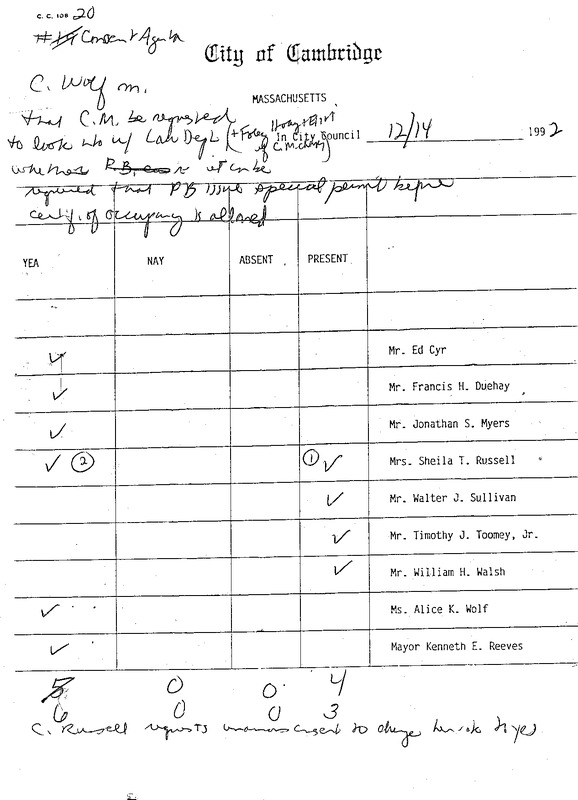 C. C. 108 20
#17 Consent Agenda
City of Cambridge
C. Wolf m.
MASSACHUSETTS
that C.M. be requested
to look into w/ Law Dept (+ Foley Hoag + Eliot
In City Council 12/14 1992
whether P.B. it can be
required that PB issue special permit before
certif. of occupancy is allowed
YEA NAY ABSENT PRESENT
✓ Mr. Ed Cyr
✓ Mr. Francis H. Duehay
✓ Mr. Jonathan S. Myers
✓ ② ① ✓ Mrs. Sheila T. Russell
✓ Mr. Walter J. Sullivan
✓ Mr. Timothy J. Toomey, Jr.
✓ Mr. William H. Walsh
✓ Ms. Alice K. Wolf
✓ Mayor Kenneth E. Reeves
5 0 0 4
6 0 0 3
C. Russell requests unanimous consent to change her vote to yes